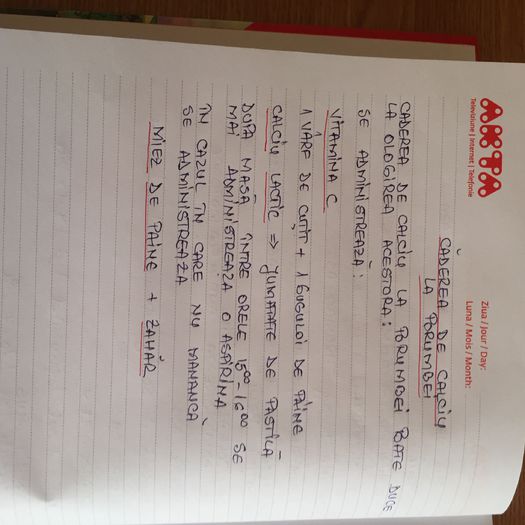 AKTA
Televisiune | Internet | Telefonie
Ziua / Jour / Day:
Luna / Mois / Month:
CĂDEREA DE CALCIU
LA PORUMBEI
CADEREA DE CALCIU LA PORUMBEI POATE DUCE
LA OLOGIREA ACESTORA:
SE ADMINISTREAZĂ:
VITAMINA C
1 VÂRF DE CUȚIT + 1 GUGULOI DE PÂINE
CALCIU LACTIC => JUMATATE DE PASTILĂ
DUPĂ MASĂ ÎNTRE ORELE 15⁰⁰ 16⁰⁰ SE
MAI ADMINISTREAZA O ASPIRINA
ÎN CAZUL ÎN CARE NU MANANCĂ
SE ADMINISTREAZA
MIEZ DE PAINE + ZAHĂR